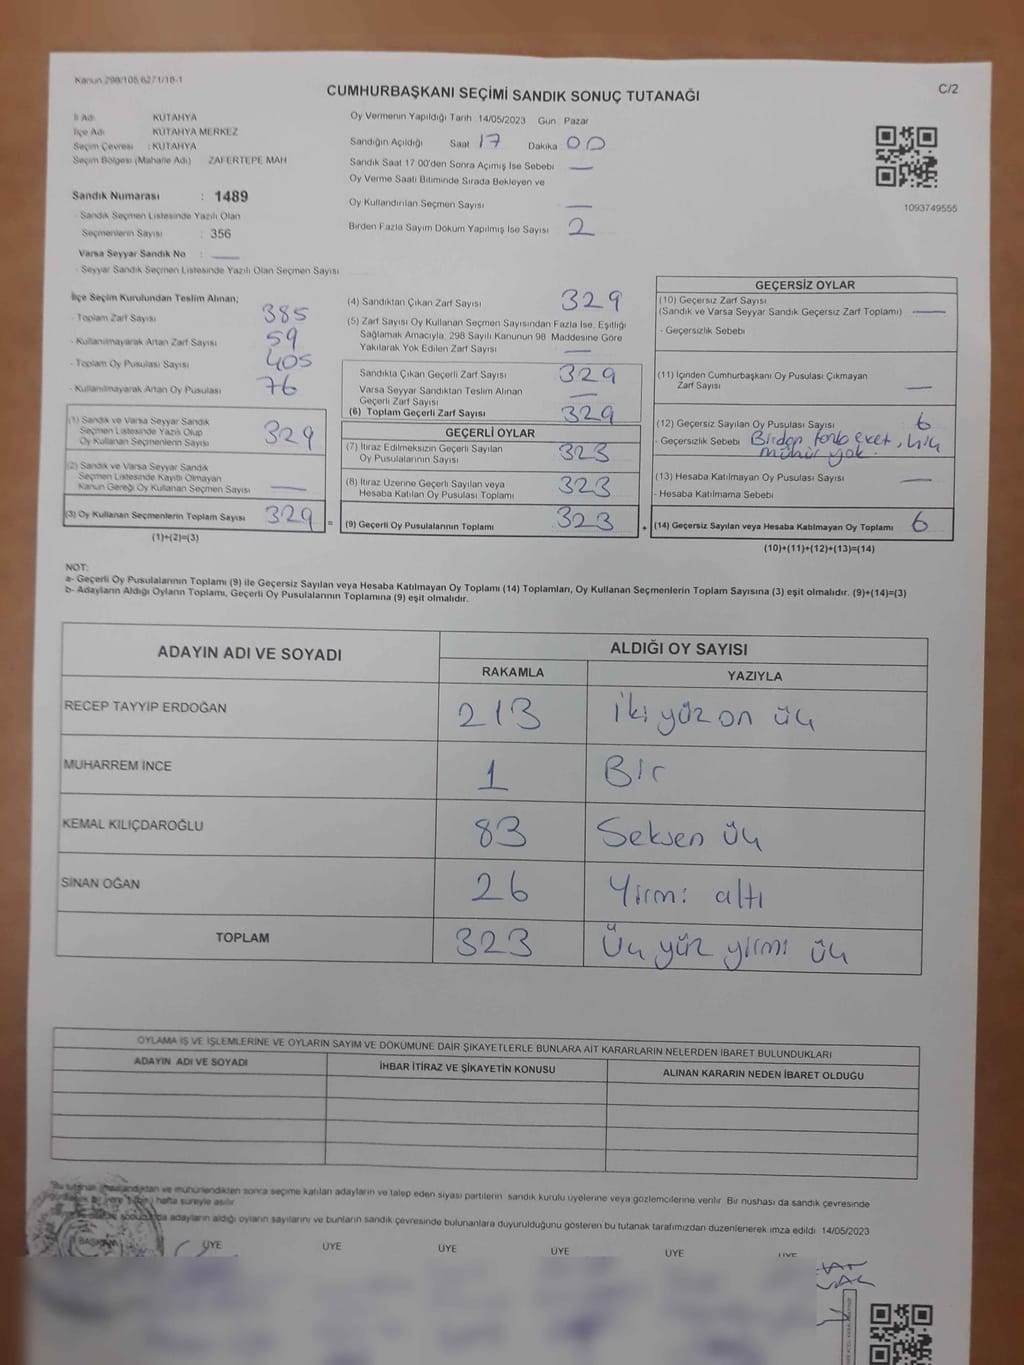 Kanun 298/105 6271/18-1
C/2
CUMHURBAŞKANI SEÇİMİ SANDIK SONUÇ TUTANAĞI
İl Adı KÜTAHYA
İlçe Adı KÜTAHYA MERKEZ
Seçim Çevresi : KÜTAHYA
Seçim Bölgesi (Mahalle Adı) ZAFERTEPE MAH
Sandık Numarası : 1489
- Sandık Seçmen Listesinde Yazılı Olan
Seçmenlerin Sayısı : 356
Varsa Seyyar Sandık No :
- Seyyar Sandık Seçmen Listesinde Yazılı Olan Seçmen Sayısı
Oy Vermenin Yapıldığı Tarih 14/05/2023 Gün Pazar
Sandığın Açıldığı Saat 17 Dakika 00
Sandık Saat 17 00'den Sonra Açımış İse Sebebi —
Oy Verme Saati Bitiminde Sırada Bekleyen ve
Oy Kullandırılan Seçmen Sayısı —
Birden Fazla Sayım Döküm Yapılmış İse Sayısı 2
1093749555
İlçe Seçim Kurulundan Teslim Alınan;
- Toplam Zarf Sayısı 385
- Kullanılmayarak Artan Zarf Sayısı 59
- Toplam Oy Pusulası Sayısı 405
- Kullanılmayarak Artan Oy Pusulası 76
(1) Sandık ve Varsa Seyyar Sandık
Seçmen Listesinde Yazılı Olup
Oy Kullanan Seçmenlerin Sayısı 329
(2) Sandık ve Varsa Seyyar Sandık
Seçmen Listesinde Kayıtlı Olmayan
Kanun Gereği Oy Kullanan Seçmen Sayısı —
(3) Oy Kullanan Seçmenlerin Toplam Sayısı 329 =
(1)+(2)=(3)
(4) Sandıktan Çıkan Zarf Sayısı 329
(5) Zarf Sayısı Oy Kullanan Seçmen Sayısından Fazla İse, Eşitliği
Sağlamak Amacıyla, 298 Sayılı Kanunun 98 Maddesine Göre
Yakılarak Yok Edilen Zarf Sayısı —
Sandıkta Çıkan Geçerli Zarf Sayısı 329
Varsa Seyyar Sandıktan Teslim Alınan
Geçerli Zarf Sayısı —
(6) Toplam Geçerli Zarf Sayısı 329
GEÇERLİ OYLAR
(7) İtiraz Edilmeksizin Geçerli Sayılan
Oy Pusulalarının Sayısı 323
(8) İtiraz Üzerine Geçerli Sayılan veya
Hesaba Katılan Oy Pusulası Toplamı 323
(9) Geçerli Oy Pusulalarının Toplamı 323 +
GEÇERSİZ OYLAR
(10) Geçersiz Zarf Sayısı
(Sandık ve Varsa Seyyar Sandık Geçersiz Zarf Toplamı) —
- Geçersizlik Sebebi
(11) İçinden Cumhurbaşkanı Oy Pusulası Çıkmayan
Zarf Sayısı —
(12) Geçersiz Sayılan Oy Pusulası Sayısı 6
- Geçersizlik Sebebi Birden evet, hiç
mühür yok.
(13) Hesaba Katılmayan Oy Pusulası Sayısı —
- Hesaba Katılmama Sebebi
(14) Geçersiz Sayılan veya Hesaba Katılmayan Oy Toplamı 6
(10)+(11)+(12)+(13)=(14)
NOT:
a- Geçerli Oy Pusulalarının Toplamı (9) ile Geçersiz Sayılan veya Hesaba Katılmayan Oy Toplamı (14) Toplamları, Oy Kullanan Seçmenlerin Toplam Sayısına (3) eşit olmalıdır. (9)+(14)=(3)
b- Adayların Aldığı Oyların Toplamı, Geçerli Oy Pusulalarının Toplamına (9) eşit olmalıdır.
ADAYIN ADI VE SOYADI ALDIĞI OY SAYISI
RAKAMLA YAZIYLA
RECEP TAYYİP ERDOĞAN 213 İki yüz on üç
MUHARREM İNCE 1 Bir
KEMAL KILIÇDAROĞLU 83 Seksen üç
SİNAN OĞAN 26 Yirmi altı
TOPLAM 323 Üç yüz yirmi üç
OYLAMA İŞ VE İŞLEMLERİNE VE OYLARIN SAYIM VE DÖKÜMÜNE DAİR ŞİKAYETLERLE BUNLARA AİT KARARLARIN NELERDEN İBARET BULUNDUKLARI
ADAYIN ADI VE SOYADI İHBAR İTİRAZ VE ŞİKAYETİN KONUSU ALINAN KARARIN NEDEN İBARET OLDUĞU
ve mühürlendikten sonra seçime katılan adayların ve talep eden siyasi partilerin sandık kurulu üyelerine veya gözlemcilerine verilir Bir nüshası da sandık çevresinde
hafta süreyle asılır
adayların aldığı oyların sayılarını ve bunların sandık çevresinde bulunanlara duyurulduğunu gösteren bu tutanak tarafımızdan düzenlenerek imza edildi 14/05/2023
BAŞKAN ÜYE ÜYE ÜYE ÜYE ÜYE ÜYE